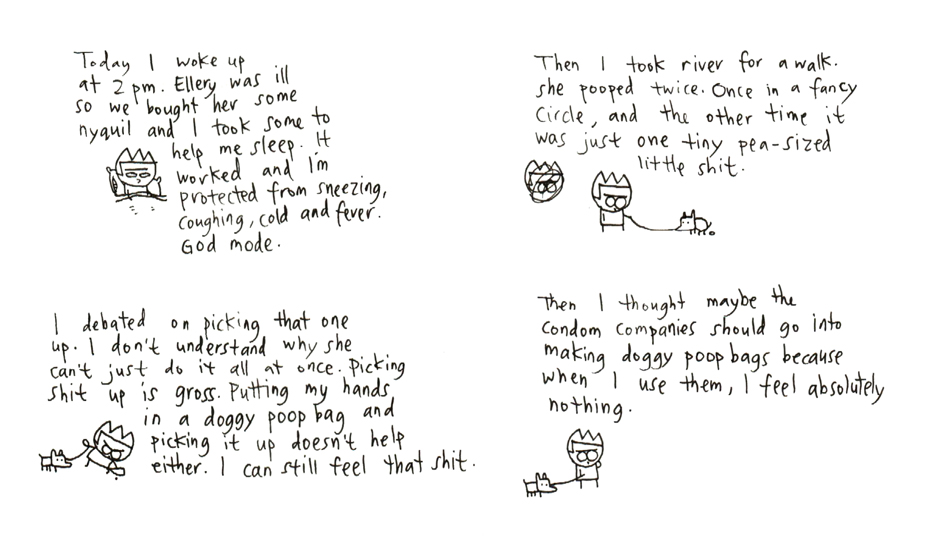 Today I woke up
at 2 pm. Ellery was ill
so we bought her some
nyquil and I took some to
help me sleep. It
worked and I'm
protected from sneezing,
coughing, cold and fever.
God mode.
Then I took river for a walk.
she pooped twice. Once in a fancy
circle, and the other time it
was just one tiny pea-sized
little shit.
I debated on picking that one
up. I don't understand why she
can't just do it all at once. Picking
shit up is gross. Putting my hands
in a doggy poop bag and
picking it up doesn't help
either. I can still feel that shit.
Then I thought maybe the
condom companies should go into
making doggy poop bags because
when I use them, I feel absolutely
nothing.